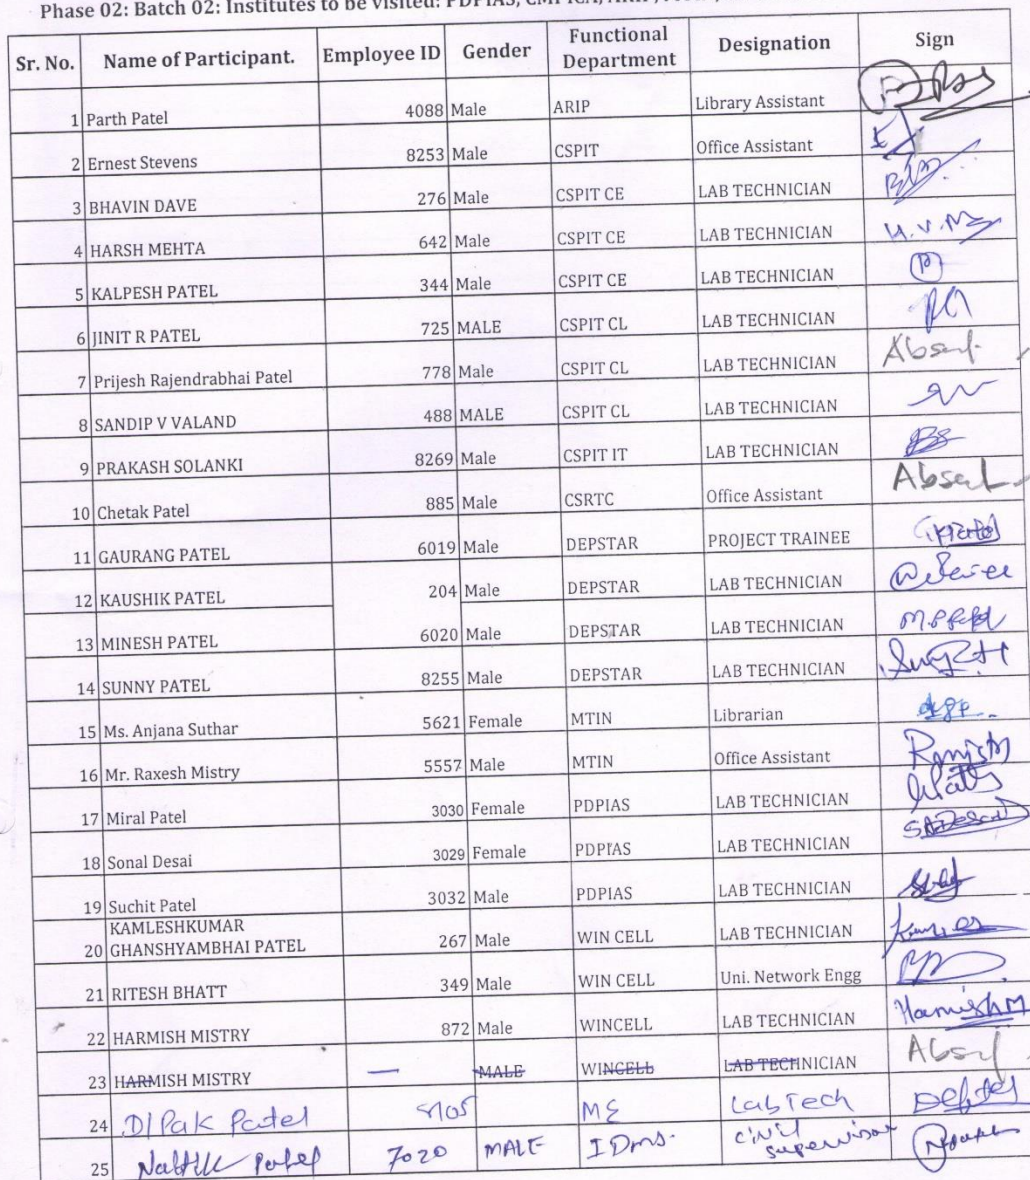 Phase 02: Batch 02: Institutes to be visited: PDPIAS, CMPICA, ARIP,
Sr. No. Name of Participant. Employee ID Gender Functional Department Designation Sign
1 Parth Patel 4088 Male ARIP Library Assistant
2 Ernest Stevens 8253 Male CSPIT Office Assistant
3 BHAVIN DAVE 276 Male CSPIT CE LAB TECHNICIAN
4 HARSH MEHTA 642 Male CSPIT CE LAB TECHNICIAN H.V.M
5 KALPESH PATEL 344 Male CSPIT CE LAB TECHNICIAN
6 JINIT R PATEL 725 MALE CSPIT CL LAB TECHNICIAN
7 Prijesh Rajendrabhai Patel 778 Male CSPIT CL LAB TECHNICIAN Absent
8 SANDIP V VALAND 488 MALE CSPIT CL LAB TECHNICIAN
9 PRAKASH SOLANKI 8269 Male CSPIT IT LAB TECHNICIAN
10 Chetak Patel 885 Male CSRTC Office Assistant Absent
11 GAURANG PATEL 6019 Male DEPSTAR PROJECT TRAINEE
12 KAUSHIK PATEL 204 Male DEPSTAR LAB TECHNICIAN
13 MINESH PATEL 6020 Male DEPSTAR LAB TECHNICIAN
14 SUNNY PATEL 8255 Male DEPSTAR LAB TECHNICIAN
15 Ms. Anjana Suthar 5621 Female MTIN Librarian
16 Mr. Raxesh Mistry 5557 Male MTIN Office Assistant
17 Miral Patel 3030 Female PDPIAS LAB TECHNICIAN
18 Sonal Desai 3029 Female PDPIAS LAB TECHNICIAN
19 Suchit Patel 3032 Male PDPIAS LAB TECHNICIAN
20 KAMLESHKUMAR GHANSHYAMBHAI PATEL 267 Male WIN CELL LAB TECHNICIAN
21 RITESH BHATT 349 Male WIN CELL Uni. Network Engg
22 HARMISH MISTRY 872 Male WINCELL LAB TECHNICIAN Harmish M
23 HARMISH MISTRY — MALE WINCELL LAB TECHNICIAN Absent
24 DIPak Patel ME Lab Tech
25 Patel 7020 MALE IDMS. civil supervisor